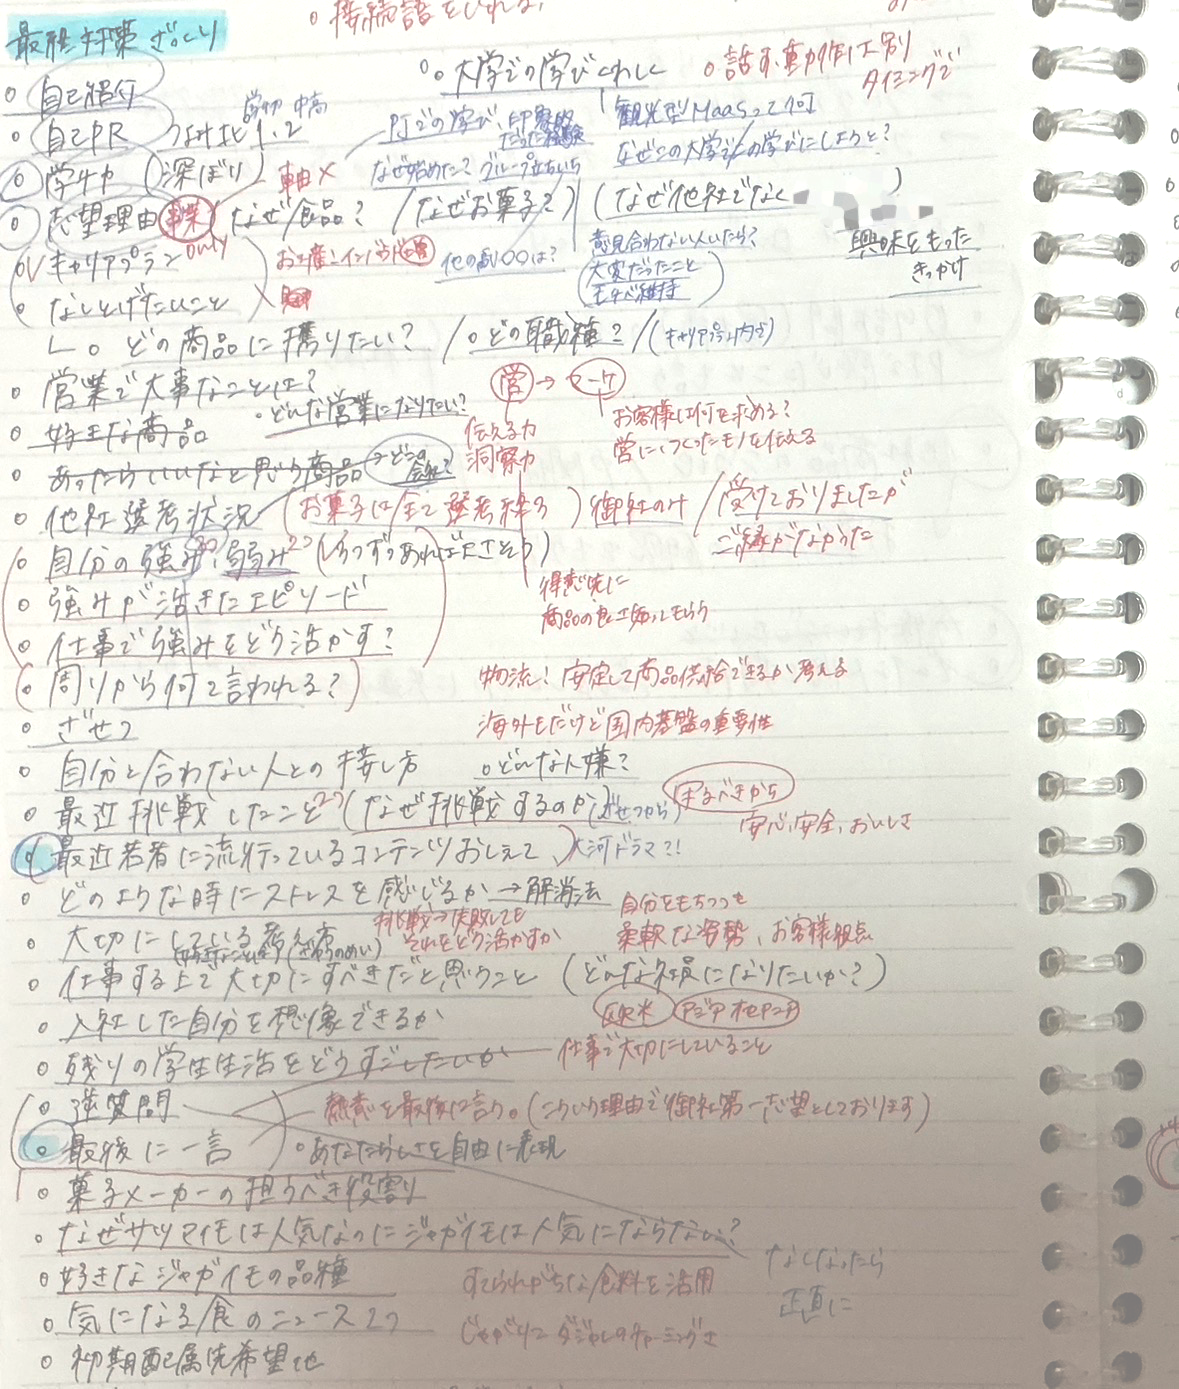 ○ 接続語をいれる、
最終対策 ざっくり
○ 自己紹介
○ 大学での学びくわしく
○ 話す、動作は別
タイミングで
○ 自己PR
1、2
学物 中高
PJでの学び、印象的
だった経験
観光型MaaSって何
○ 学チカ (深ぼり)
軸×
なぜ始めた? グループ立ちいち
なぜこの大学での学びにしようと?
○ 志望理由 事業 なぜ食品? / なぜお菓子?) (なぜ他社でなく )
only
○ キャリアプラン
お土産 インバウンド
他の○○は?
意見合わない人いたら?
大変だったこと
モチベ維持
興味をもった
きっかけ
○ なしとげたいこと
○ どの商品に携りたい? / ○ どの職種? / (キャリアプラン内容)
○ 営業で大事なことは?
○ どんな営業になりたい?
営 → マーケ
○ 好きな商品
伝える力
洞察力
お客様は何を求める?
営につくったモノを伝える
○ あったらいいなと思う商品 → どこの会社?
○ 他社選考状況 (お菓子は全て選考終る) 御社のみ / 受けておりましたが
ご縁がなかった
○ 自分の強み、弱み (1つずつあればよさそう)
得意先に
商品の良さ知ってもらう
○ 強みが活きたエピソード
○ 仕事で強みをどう活かす?
○ 周りから何て言われる?
物流! 安定して商品供給できるか考える
○ ざせつ
海外もだけど国内基盤の重要性
○ 自分と合わない人との接し方 ○ どんな人嫌?
○ 最近挑戦したこと2つ (なぜ挑戦するのか (ざせつから)
まるべきから
安心、安全、おいしさ
○ 最近若者に流行っているコンテンツおしえて 大河ドラマ?!
○ どのような時にストレスを感じるか → 解消法
挑戦→失敗しても
それをどう活かすか
自分をもちつつも
柔軟な姿勢、お客様視点
○ 大切にしている
○ 仕事する上で大切にすべきだと思うこと (どんな社員になりたいか?)
○ 入社した自分を想像できるか
欧米 アジア
○ 残りの学生生活をどうすごしたいか
仕事で大切にしていること
○ 逆質問
熱意を最後に言う。(こういう理由で御社第一志望としております)
○ 最後に一言
○ あなたらしさを自由に表現
○ 菓子メーカーの担うべき役割り
○ なぜサツマイモは人気なのにジャガイモは人気にならない?
なくなったら
正直に
○ 好きなジャガイモの品種
すてられがちな食料を活用
○ 気になる食のニュース2つ
じゃがりこ ダジャレのチャーミングさ
○ 初期配属先希望地